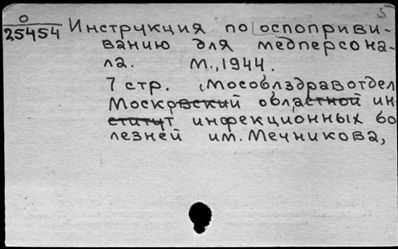 5
О
25454
Инструкция по оспопрививанию для медперсона-
ла. М., 1944.
7 стр. (Мособлздравотдел
Московский областной ин-
ститут инфекционных бо
лезней им. Мечникова,